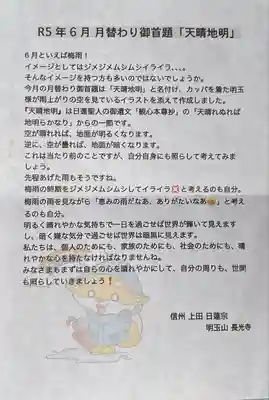 R5 年 6 月 月替わり御首題「天晴地明」
6月といえば梅雨！
イメージとしてはジメジメムシムシイライラ、、、。
そんなイメージを持つ方も多いのではないでしょうか。
今月の月替わり御首題は「天晴地明」と名付け、カッパを着た明玉
様が雨上がりの空を見ているイラストを添えて作製しました。
『天晴地明』は日蓮聖人の御遺文「観心本尊抄」の「天晴れぬれば
地明らかなり」からの一節です。
空が晴れれば、地面が明るくなります。
逆に、空が曇れば、地面が暗くなります。
これは当たり前のことですが、自分自身にも照らして考えてみま
しょう。
先程あげた雨もそうですね。
梅雨の時期をジメジメムシムシしてイライラ💢と考えるのも自分。
梅雨の雨を見ながら「恵みの雨だなあ、ありがたいなあ」と考え
るのも自分。
明るく晴れやかな気持ちで一日を過ごせば世界が輝いて見えます
し、暗く嫌な気分で過ごせば世界は暗黒に見えます。
私たちは、個人のためにも、家族のためにも、社会のためにも、晴
れやかな心を持たなければなりませんね。
みなさまもまずは自らの心を晴れやかにして、自分の周りも、世間
も照らしていきましょう！
信州 上田 日蓮宗
明玉山 長光寺